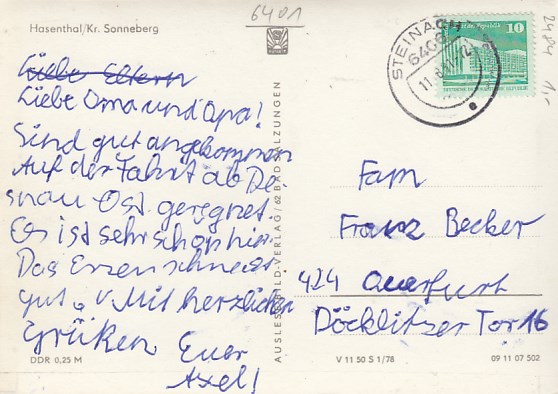 Hasenthal/Kr. Sonneberg
6401
Liebe Eltern
Liebe Oma und Opa!
Sind gut angekommen
Auf der Fahrt ab De
snau Ost geregnet.
Es ist sehr schön hier.
Das Essen schmeckt
gut. Mit herzlichen
Grüßen Euer
Axel!
DDR 0,25 M
AUSLESE-BILD-VERLAG / 62 BAD SALZUNGEN
STEINACH
6406
10
2484
Fam
Franz Becker
424 Querfurt
Döcklitzer Tor 16
V 11 50 S 1/78
09 11 07 502